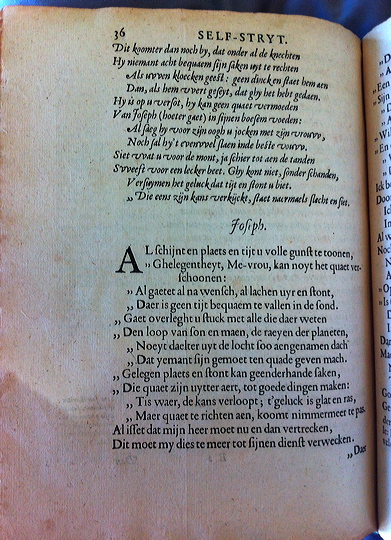 36 SELF-STRYT.
Dit koomter dan noch by, dat onder al de knechten
Hy niemant acht bequaem sijn saken uyt te rechten
Als uwen kloecken geest: geen dincken staet hem aen
Dan, als hem wert geseyt, dat ghy het hebt gedaen.
Hy is op u versot, hy kan geen quaet vermoeden
Van Joseph (hoeter gaet) in sijnen boesem voeden:
Al saeg hy voor zijn oogh u jocken met zijn vrouw,
Noch sal hy't evenwel slaen inde beste vouw.
Siet wat u voor de mont, ja schier tot aen de tanden
Sweeft voor een lecker beet. Ghy kont niet, sonder schanden,
Versuymen het geluck dat tijt en stont u biet.
„Die eens zijn kans verkijckt, staet naemaels slecht en siet.
Joseph.
AL schijnt en plaets en tijt u volle gunst te toonen,
„ Ghelegentheyt, Me-vrou, kan noyt het quaet ver-
schoonen:
„ Al gaetet al na wensch, al lachen uyr en stont,
„ Daer is geen tijt bequaem te vallen in de sond.
„ Gaet overleght u stuck met alle die daer weten
„ Den loop van son en maen, de raeyen der planeten,
„ Noeyt daelter uyt de locht soo aengenamen dach
„ Dat yemant sijn gemoet ten quade geven mach.
„ Gelegen plaets en stont kan geenderhande saken,
„ Die quaet zijn uytter aert, tot goede dingen maken:
„ Tis waer, de kans verloopt; t'geluck is glat en ras,
„ Maer quaet te richten aen, koomt nimmermeer te pas.
Al isset dat mijn heer moet nu en dan vertrecken,
Dit moet my dies te meer tot sijnen dienst verwecken.
„Daer